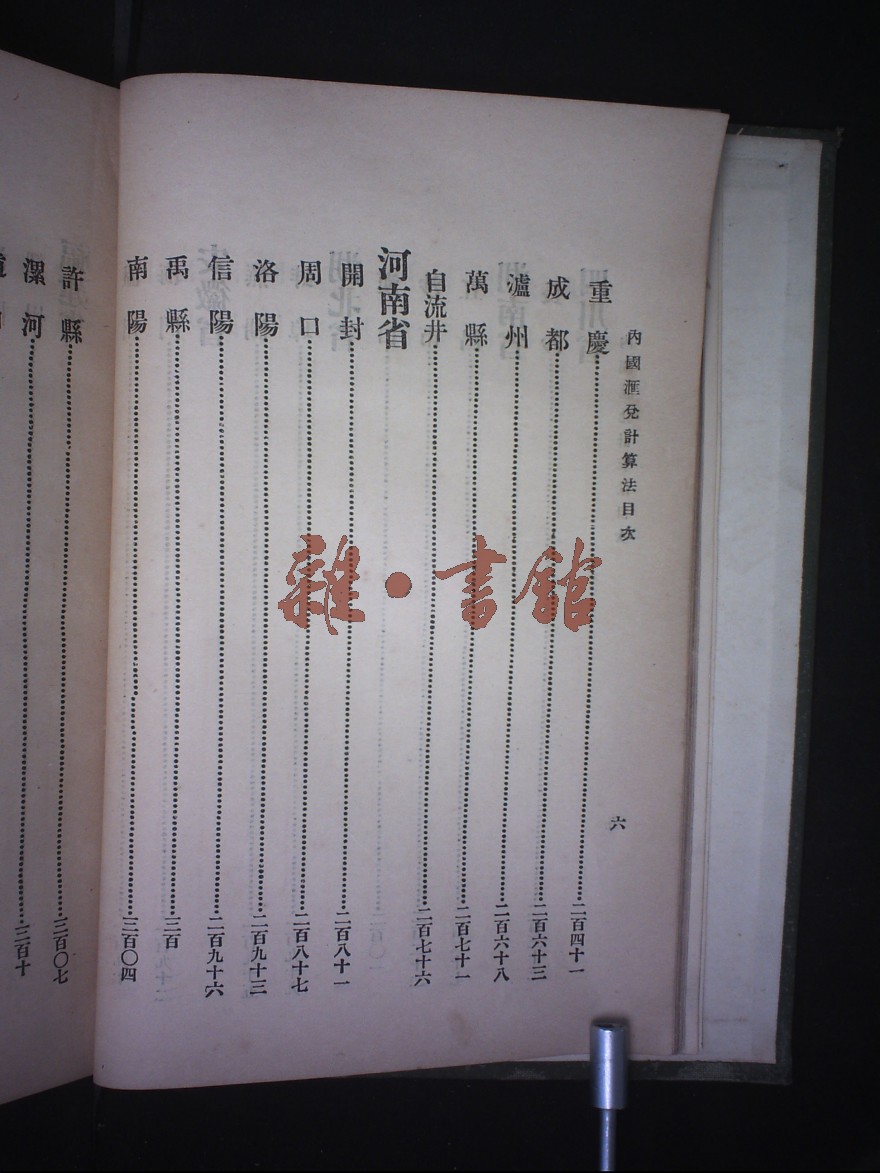 內國滙兌計算法目次
六
重慶……二百四十一
成都……二百六十三
瀘州……二百六十八
萬縣……二百七十一
自流井……二百七十六
河南省
開封……二百八十一
周口……二百八十七
洛陽……二百九十三
信陽……二百九十六
禹縣……三百
南陽……三百〇四
許縣……三百〇七
漯河……三百十
雜·書館